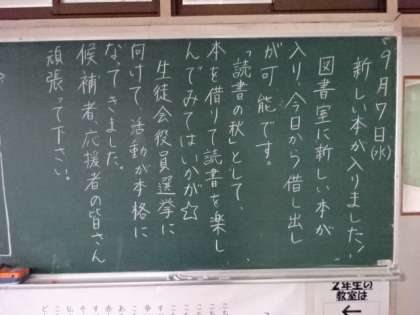 9月7日(水)
新しい本が入りました!
図書室に新しい本が
入り、今日から借し出し
が可能です。
「読書の秋」として、
本を借りて読書を楽し
んでみてはいかが☆
生徒会役員選挙に
向けて、活動が本格に
なってきました。
候補者、応援者の皆さん
頑張って下さい。
2年生の
教室は
←